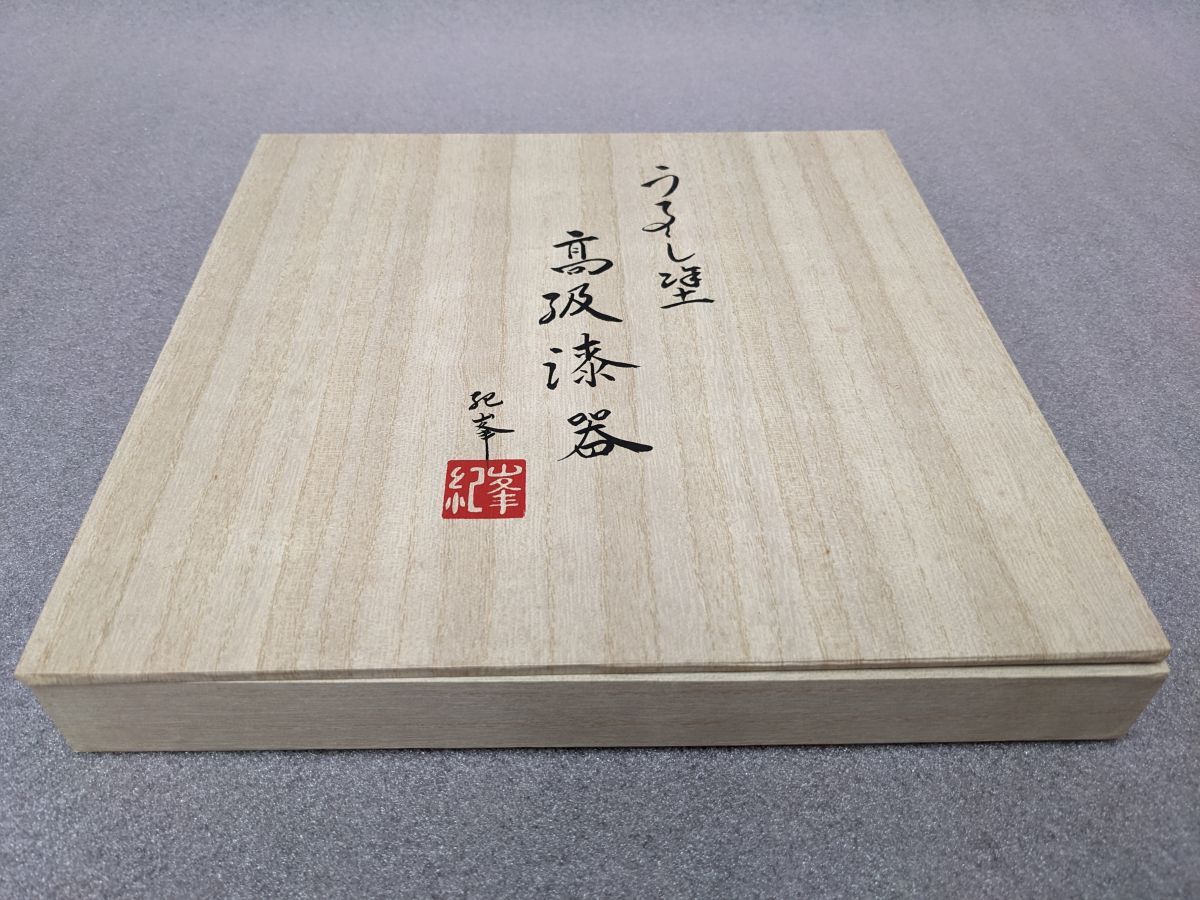 うるし塗
高級漆器
紀峯
峯紀